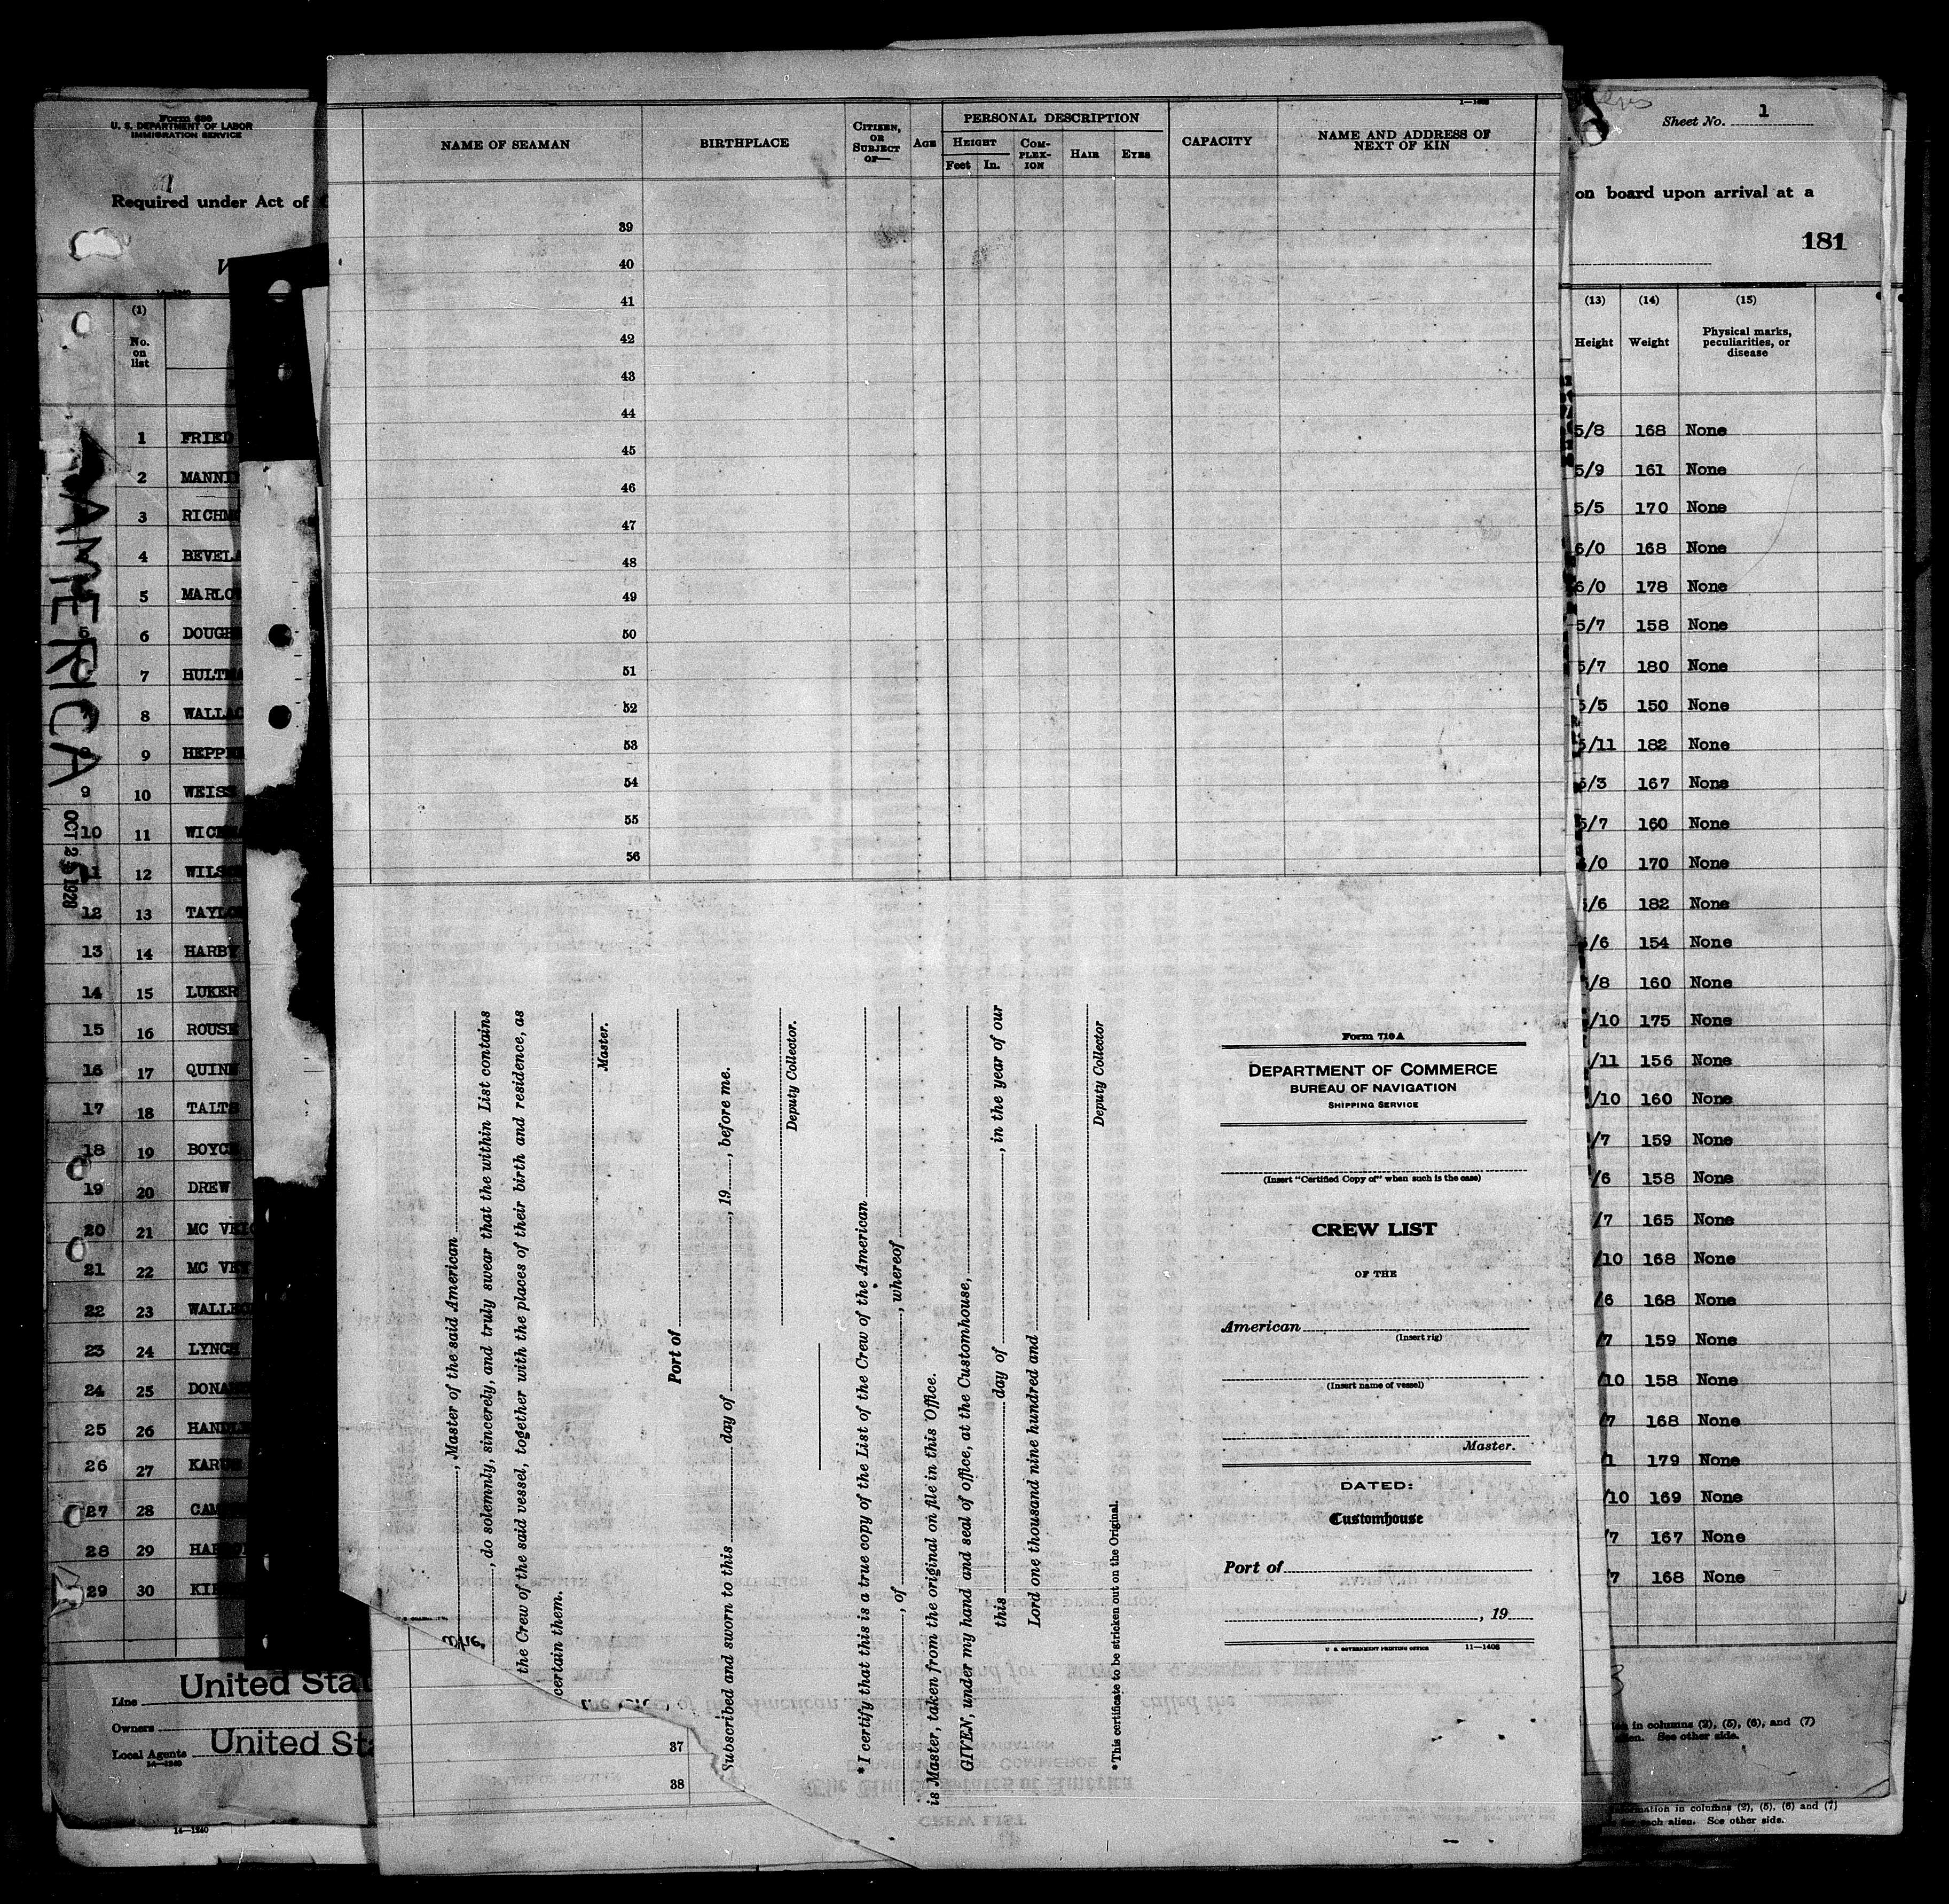 Form 680
U. S. DEPARTMENT OF LABOR
IMMIGRATION SERVICE
Required under Act of
(1)
No.
on
list
1 FRIED
2 MANNI
3 RICHM
4 BEVELA
5 MARLO
5 6 DOUGH
7 HULTM
8 WALLAC
8 9 HEPPE
9 10 WEISS
10 11 WICK
11 12 WILS
12 13 TAYLO
13 14 HARBY
14 15 LUKER
15 16 ROUSE
16 17 QUINN
17 18 TALTS
18 19 BOYCE
19 20 DREW
20 21 MC VEIG
21 22 MC VEY
22 23 WALLE
23 24 LYNCH
24 25 DONA
25 26 HANDL
26 27 KARU
27 28 CAM
28 29 HAR
29 30 KI
AMERICA
OCT 25 1928
Line United Stat
Owners
Local Agents United Sta
14—1240
14—1240
NAME OF SEAMAN
BIRTHPLACE
CITIZEN,
OR
SUBJECT
OF—
AGE
PERSONAL DESCRIPTION
HEIGHT
Feet In.
COM-
PLEX-
ION
HAIR
EYES
CAPACITY
NAME AND ADDRESS OF
NEXT OF KIN
39
40
41
42
43
44
45
46
47
48
49
50
51
52
53
54
55
56
, Master of the said American
, do solemnly, sincerely, and truly swear that the within List contains
the Crew of the said vessel, together with the places of their birth and residence, as
certain them.
Master.
Port of
Subscribed and sworn to this day of , 19 , before me.
Deputy Collector.
*I certify that this is a true copy of the List of the Crew of the American
, of , whereof
is Master, taken from the original on file in this Office.
GIVEN, under my hand and seal of office, at the Customhouse,
this day of , in the year of our
Lord one thousand nine hundred and
Deputy Collector
*This certificate to be stricken out on the Original.
37
38
Form 710 A
DEPARTMENT OF COMMERCE
BUREAU OF NAVIGATION
SHIPPING SERVICE
(Insert "Certified Copy of" when such is the case)
CREW LIST
OF THE
American
(Insert rig)
(Insert name of vessel)
Master.
DATED:
Customhouse
Port of
, 19
U. S. GOVERNMENT PRINTING OFFICE 11—1408
Sheet No. 1
on board upon arrival at a
181
(13) (14) (15)
Height Weight Physical marks,
peculiarities, or
disease
5/8 168 None
5/9 161 None
5/5 170 None
6/0 168 None
6/0 178 None
5/7 158 None
5/7 180 None
5/5 150 None
5/11 182 None
5/3 167 None
5/7 160 None
6/0 170 None
/6 182 None
/6 154 None
/8 160 None
/10 175 None
/11 156 None
/10 160 None
/7 159 None
/6 158 None
/7 165 None
/10 168 None
/6 168 None
/7 159 None
/10 158 None
/7 168 None
/1 179 None
/10 169 None
/7 167 None
/7 168 None
in columns (2), (5), (6), and (7)
alien. See other side.
information in columns (2), (5), (6) and (7)
for each alien. See other side.